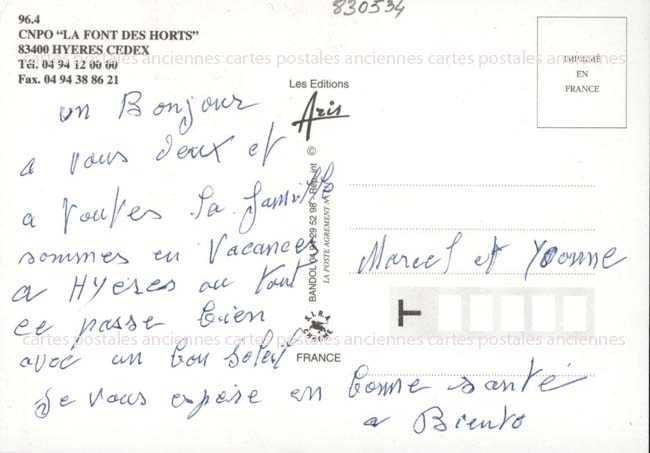 830534
96.4
CNPO "LA FONT DES HORTS"
83400 HYERES CEDEX
Tél. 04 94 12 00 00
Fax. 04 94 38 86 21
IMPRIMÉ
EN
FRANCE
cartes postales anciennes cartes postales anciennes cartes postales anciennes
Les Editions
Aris
BANDOL 04 94 29 52 98 - Repr. int ©
LA POSTE AGREMENT N°
FRANCE
un Bonjour
a vous deux et
a toutes la famille
sommes en Vacances
a HYÈRES ou tout
ce passe bien
avec un bon soleil
Je vous espère en bonne santé
a Biento
Marcel et Yvonne
cartes postales anciennes cartes postales anciennes cartes postales anciennes